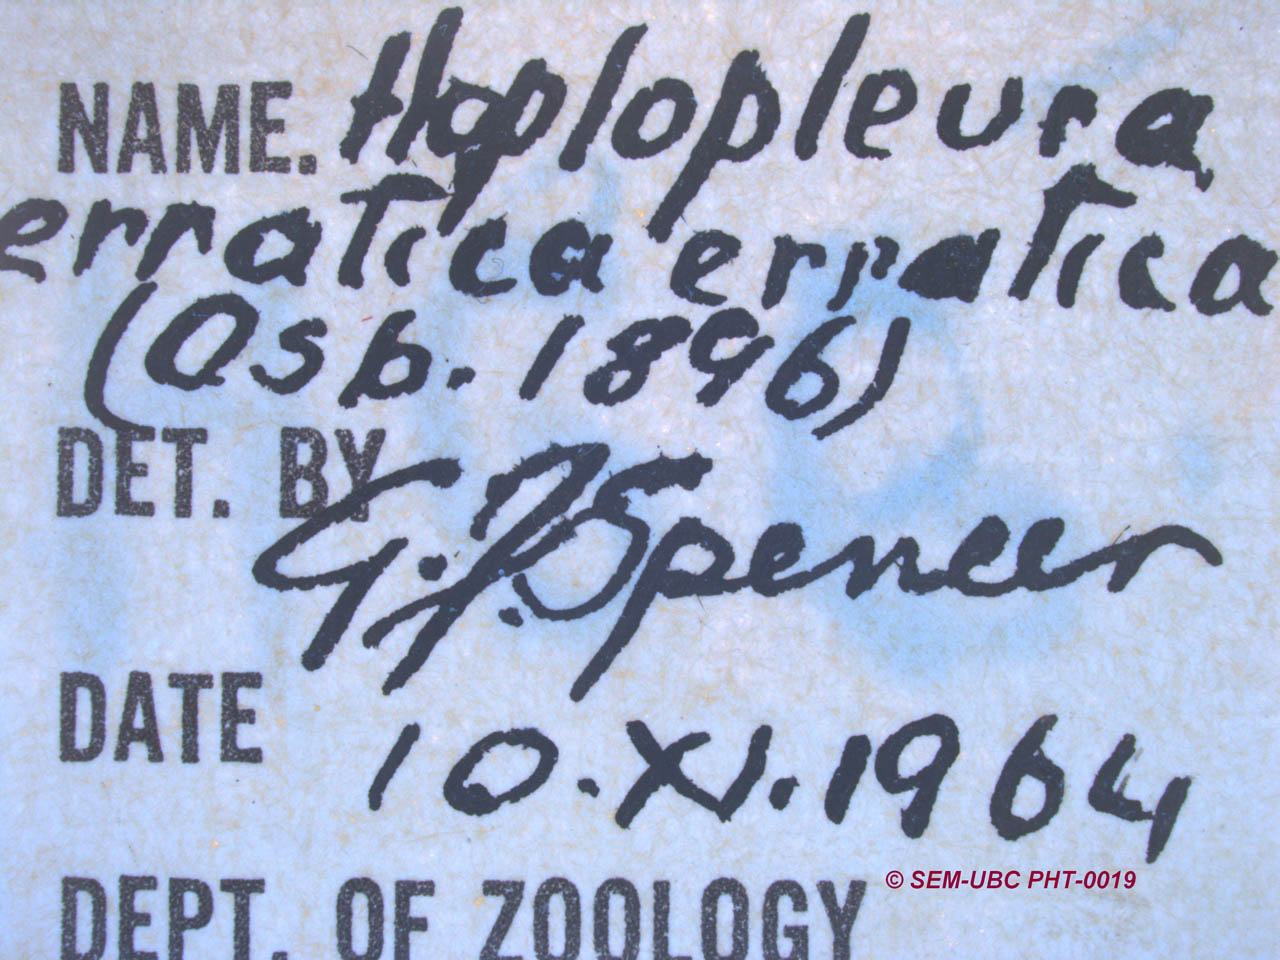 NAME. Hoplopleura
erratica erratica
(Osb. 1896)
DET. BY G. J. Spencer
DATE 10.XI.1964
DEPT. OF ZOOLOGY
© SEM-UBC PHT-0019